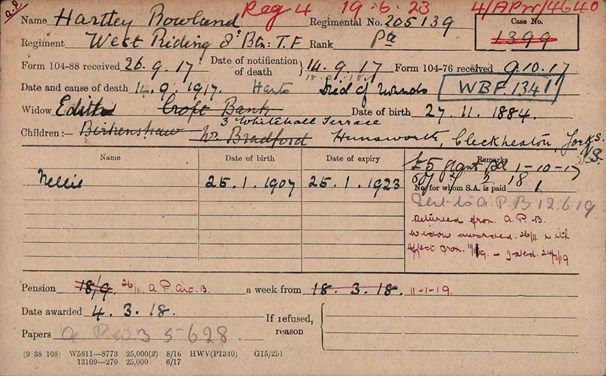 Reg 4 19.6.23 4/APM/4640
Name Hartley Rowland Regimental No. 205139 Case No.
Regiment West Riding 8' Btn: T.F Rank Pte 1399
Form 104-88 received 26.9.17 Date of notification of death 14.9.17 Form 104-76 received 9.10.17
Date and cause of death 14.9.1917. Died of Wounds WBF 1341
Widow Edith Croft Bank Date of birth 27.11.1884.
3 Whitehall Terrace
Children:— Birkenshaw Nr Bradford Hunsworth, Cleckheaton, Yorks.
Name Date of birth Date of expiry Remarks
£5 grant 1-10-17
Nellie 25.1.1907 25.1.1923 No. for whom S.A. is paid 1
Sent to A.P.B 12.6.19
Returned from A.P.B.
Widow awarded 26/11 with
effect from
Pension 18/9 26/11 a week from 18.3.18. 11-1-19.
Date awarded 4.3.18. If refused, reason
Papers 5-628
(9 38 108) W5811—8773 25,000(2) 8/16 HWV(P1340) G15/251
13109—270 25,000 6/17